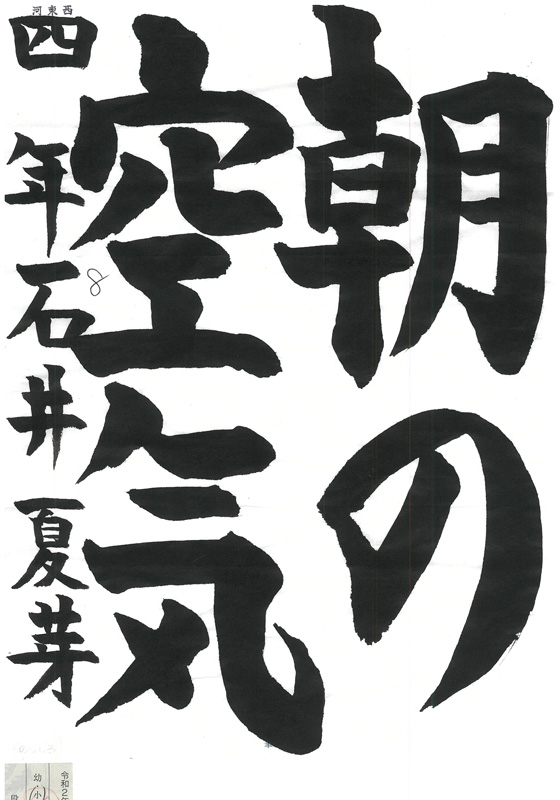 朝の
空気
四年石井夏芽
8
河東西
令和2年
幼・小